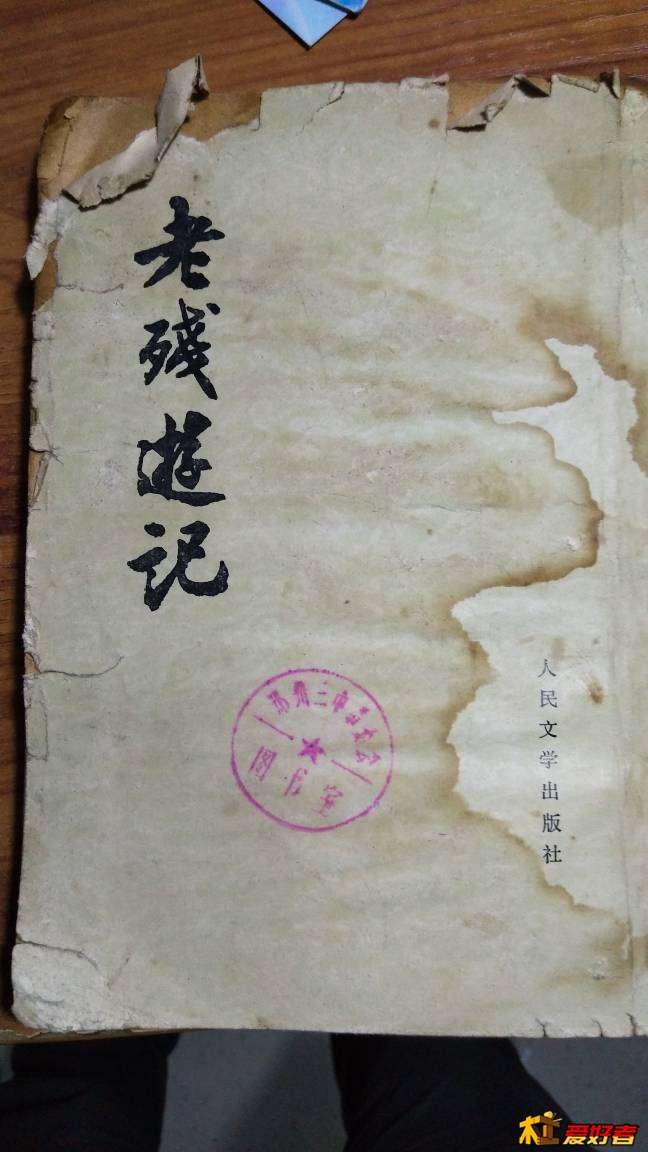 老殘遊記
人民文学出版社
三中
图书室
爱好者